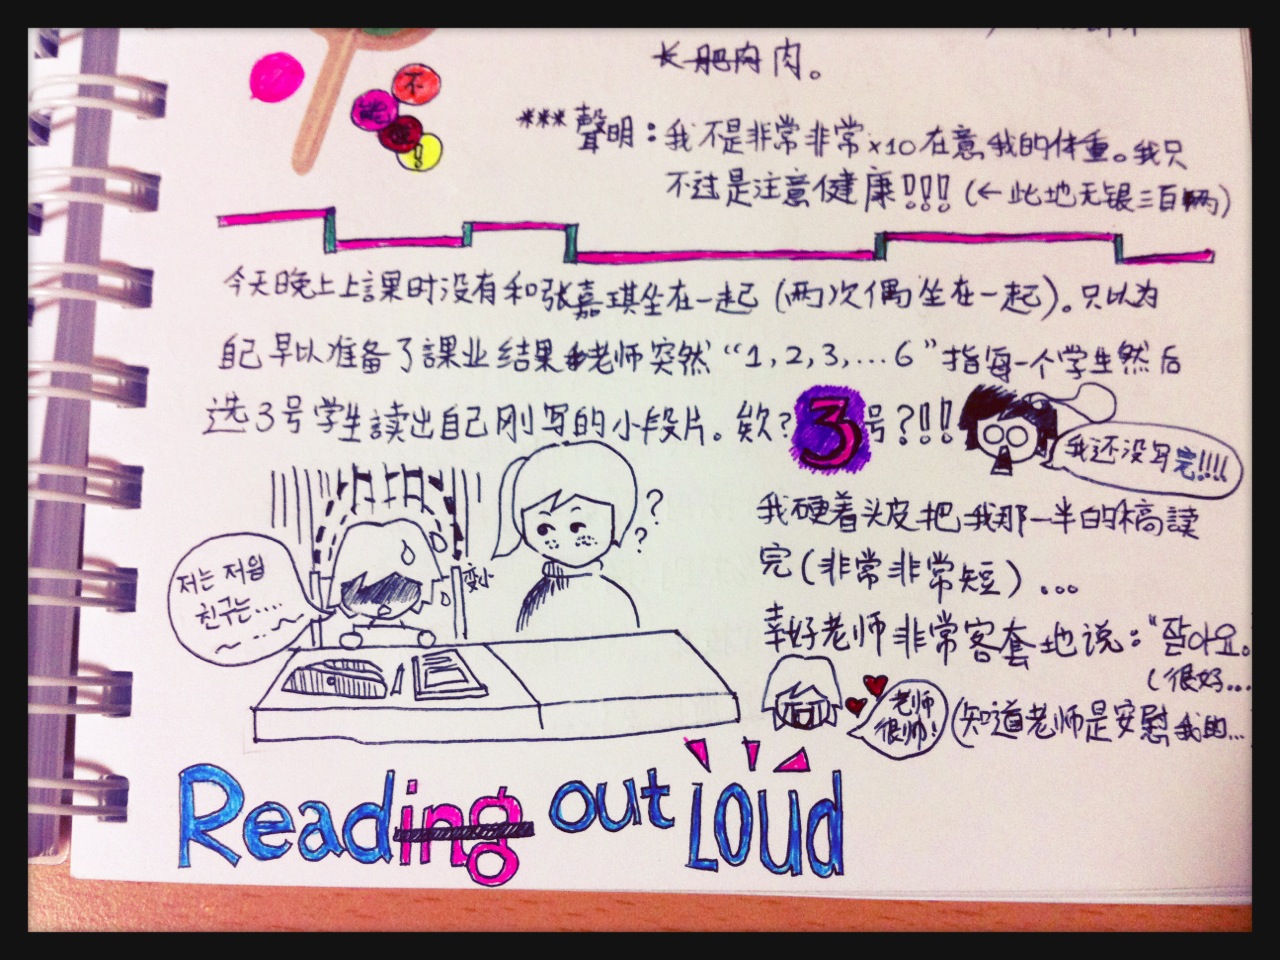 长肥肉肉。
不
!
***聲明：我不是非常非常x10在意我的体重。我只
不过是注意健康!!!(←此地无银三百两)
今天晚上上課时没有和张嘉琪坐在一起(两次偶坐在一起)。只以为
自己早以准备了課业结果老师突然“1,2,3,...6”指每一个学生然后
选3号学生讀出自己刚写的小段片。欸?3号?!!!
我还没写完!!!!
我硬着头皮把我那一半的稿讀
完(非常非常短)...
저는 저의
친구는....
变小
?
?
幸好老师非常客套地说：“잘아요。
(很好...
老师
很帅!
(知道老师是安慰我的...
Reading out Loud